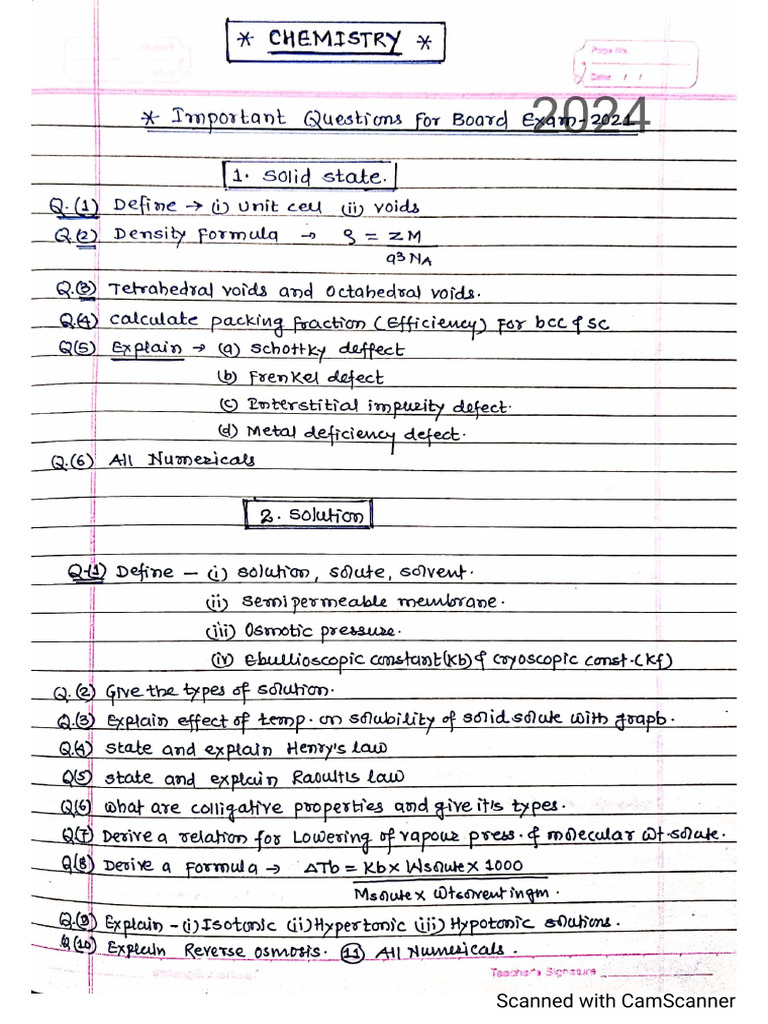 * CHEMISTRY *
Page No.
Date / /
* Important Questions for Board Exam-2021
2024
1. Solid state.
Q.(1) Define → (i) unit cell (ii) voids
Q.(2) Density formula → ρ = ZM
a3 NA
Q.(3) Tetrahedral voids and octahedral voids.
Q.(4) calculate packing fraction (Efficiency) for bcc & sc
Q(5) Explain → (a) schottky deffect
(b) Frenkel defect
(c) Interstitial impurity defect.
(d) Metal deficiency defect.
Q.(6) All Numericals
2. Solution
Q.(1) Define – (i) solution, solute, solvent.
(ii) semipermeable membrane.
(iii) Osmotic pressure.
(iv) Ebullioscopic constant(Kb) & cryoscopic const.(Kf)
Q.(2) Give the types of solution.
Q.(3) Explain effect of temp. on solubility of solid solute with graph.
Q.(4) state and explain Henry's law
Q(5) state and explain Raoult's law
Q(6) what are colligative properties and give it's types.
Q(7) Derive a relation for Lowering of vapour press. & molecular wt. solute.
Q.(8) Derive a formula → ΔTb = Kb x Wsolute x 1000
Msolute x Wtsolvent in gm.
Q.(9) Explain – (i) Isotonic (ii) Hypertonic (iii) Hypotonic solutions.
Q(10) Explain Reverse osmosis. (11) All Numericals.
Teacher's Signature
Scanned with CamScanner